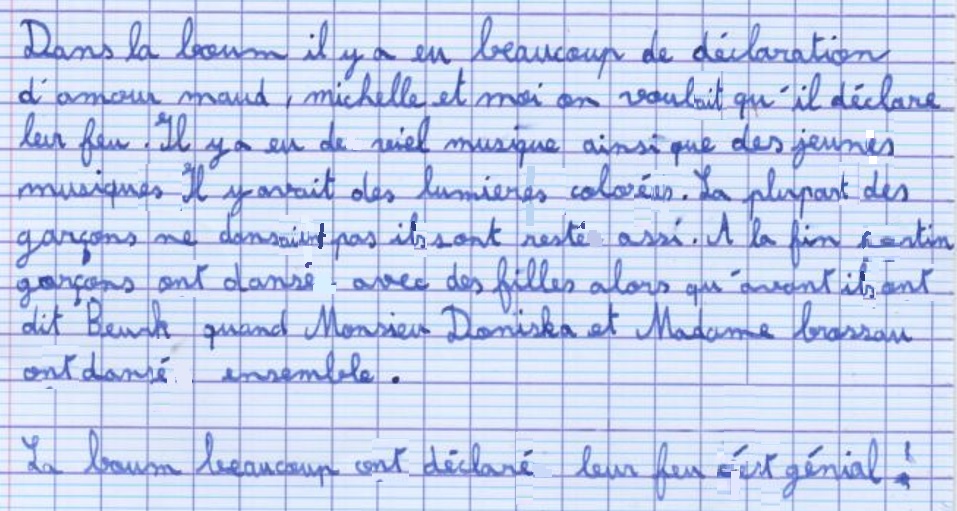 Dans la boum il y a eu beaucoup de déclaration
d'amour maud, michelle et moi on voulait qu'il déclare
leur feu. Il y a eu de vieil musique ainsi que des jeunes
musiques Il y avait des lumieres colorées. La plupart des
garçons ne dansaient pas ils sont resté assi. A la fin certin
garçons ont dansé avec des filles alors qu'avant ils ont
dit Beurk quand Monsieu Doniska et Madame brassau
ont dansé ensemble.
La boum beaucoup ont déclaré leur feu c'est génial !